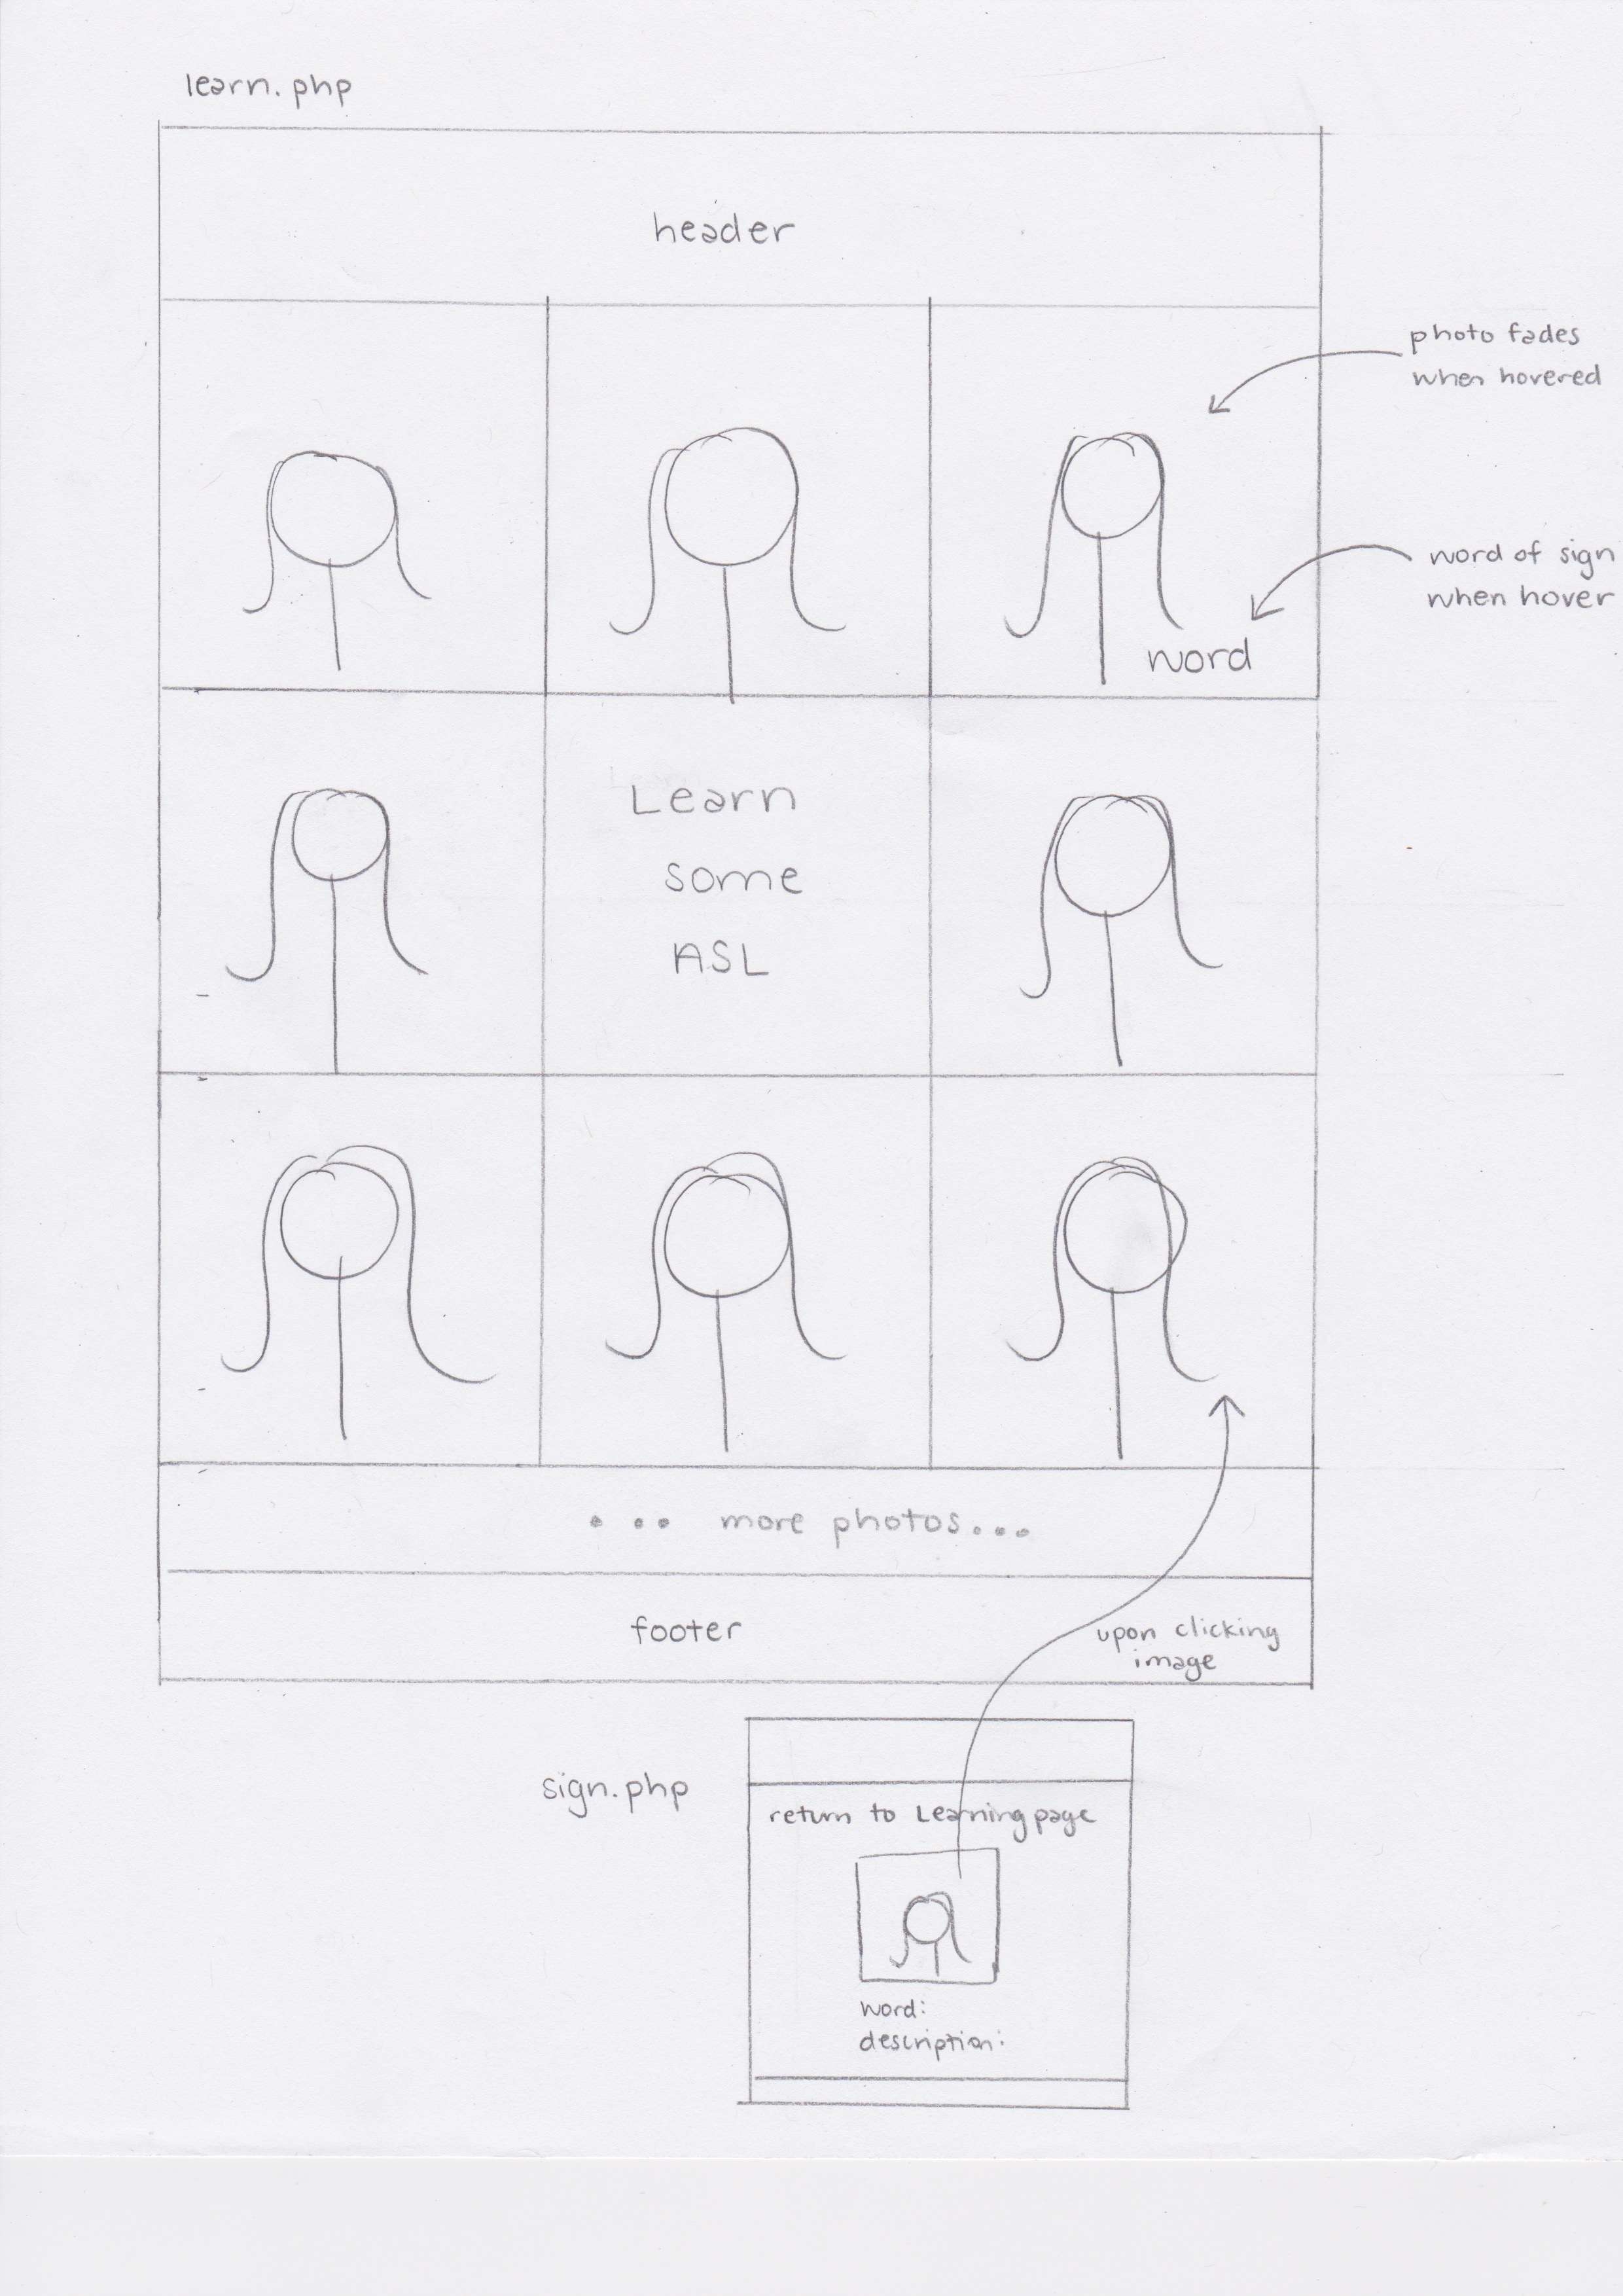 learn.php
header
photo fades
when hovered
word of sign
when hover
word
Learn
some
ASL
.... more photos....
footer
upon clicking
image
sign.php
return to Learning page
word:
description: